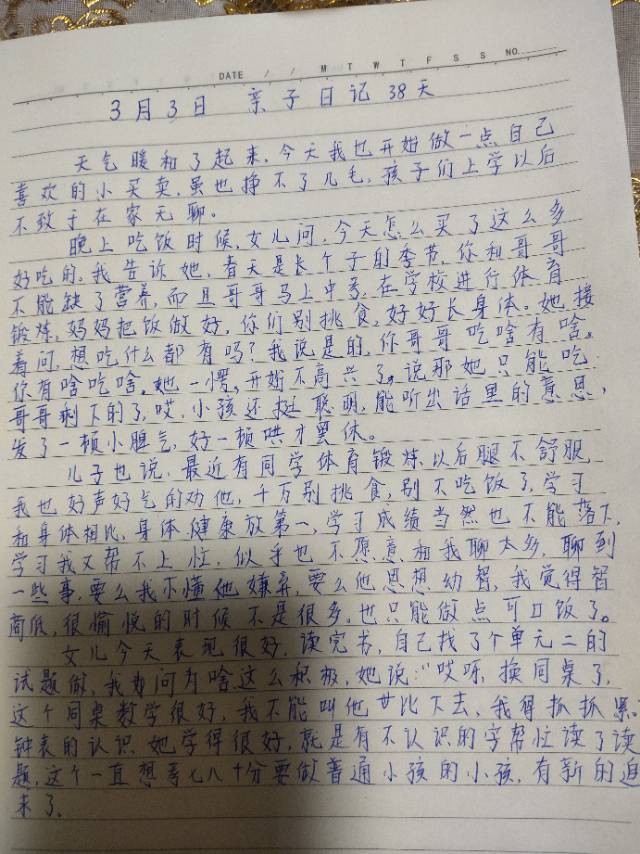 DATE / / M T W T F S S NO.
3月3日 亲子日记38天
天气暖和了起来,今天我也开始做一点自己
喜欢的小买卖,虽也挣不了几毛,孩子们上学以后
不致于在家无聊。
晚上吃饭时候,女儿问,今天怎么买了这么多
好吃的,我告诉她,春天是长个子的季节,你和哥哥
不能缺了营养,而且哥哥马上中考,在学校进行体育
锻炼,妈妈把饭做好,你们别挑食,好好长身体。她接
着问,想吃什么都有吗?我说是的,你哥哥吃啥有啥。
你有啥吃啥。她一愣,开始不高兴了。说那她只能吃
哥哥剩下的了,哎,小孩还挺聪明,能听出话里的意思,
发了一顿小脾气,好一顿哄才罢休。
儿子也说,最近有同学体育锻炼,以后腿不舒服,
我也好声好气的劝他,千万别挑食,别不吃饭了,学习
和身体相比,身体健康放第一,学习成绩当然也不能落下,
学习我又帮不上忙,似乎也不愿意和我聊太多,聊到
一些事,要么我不懂他嫌弃,要么他思想幼智,我觉得智
商低,很愉悦的时候不是很多,也只能做点可口饭了。
女儿今天表现很好,读完书,自己找了个单元二的
试题做,我力问为啥这么积极,她说:"哎呀,换同桌了,
这个同桌数学很好,我不能叫他比下去,我得抓抓紧
钟表的认识她学得很好,就是有不认识的字帮忙读了读
题,这个一直想考七八十分要做普通小孩的小孩,有新的追
来了。